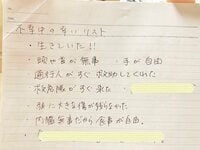 不幸中の幸いリスト
・生きていた!!
・腕や首が無事 ・手が自由
・通行人がすぐ救助してくれた
・救急隊がすぐ来た
・顔に大きな傷が残らなかった
・内臓無事だから食事が自由。